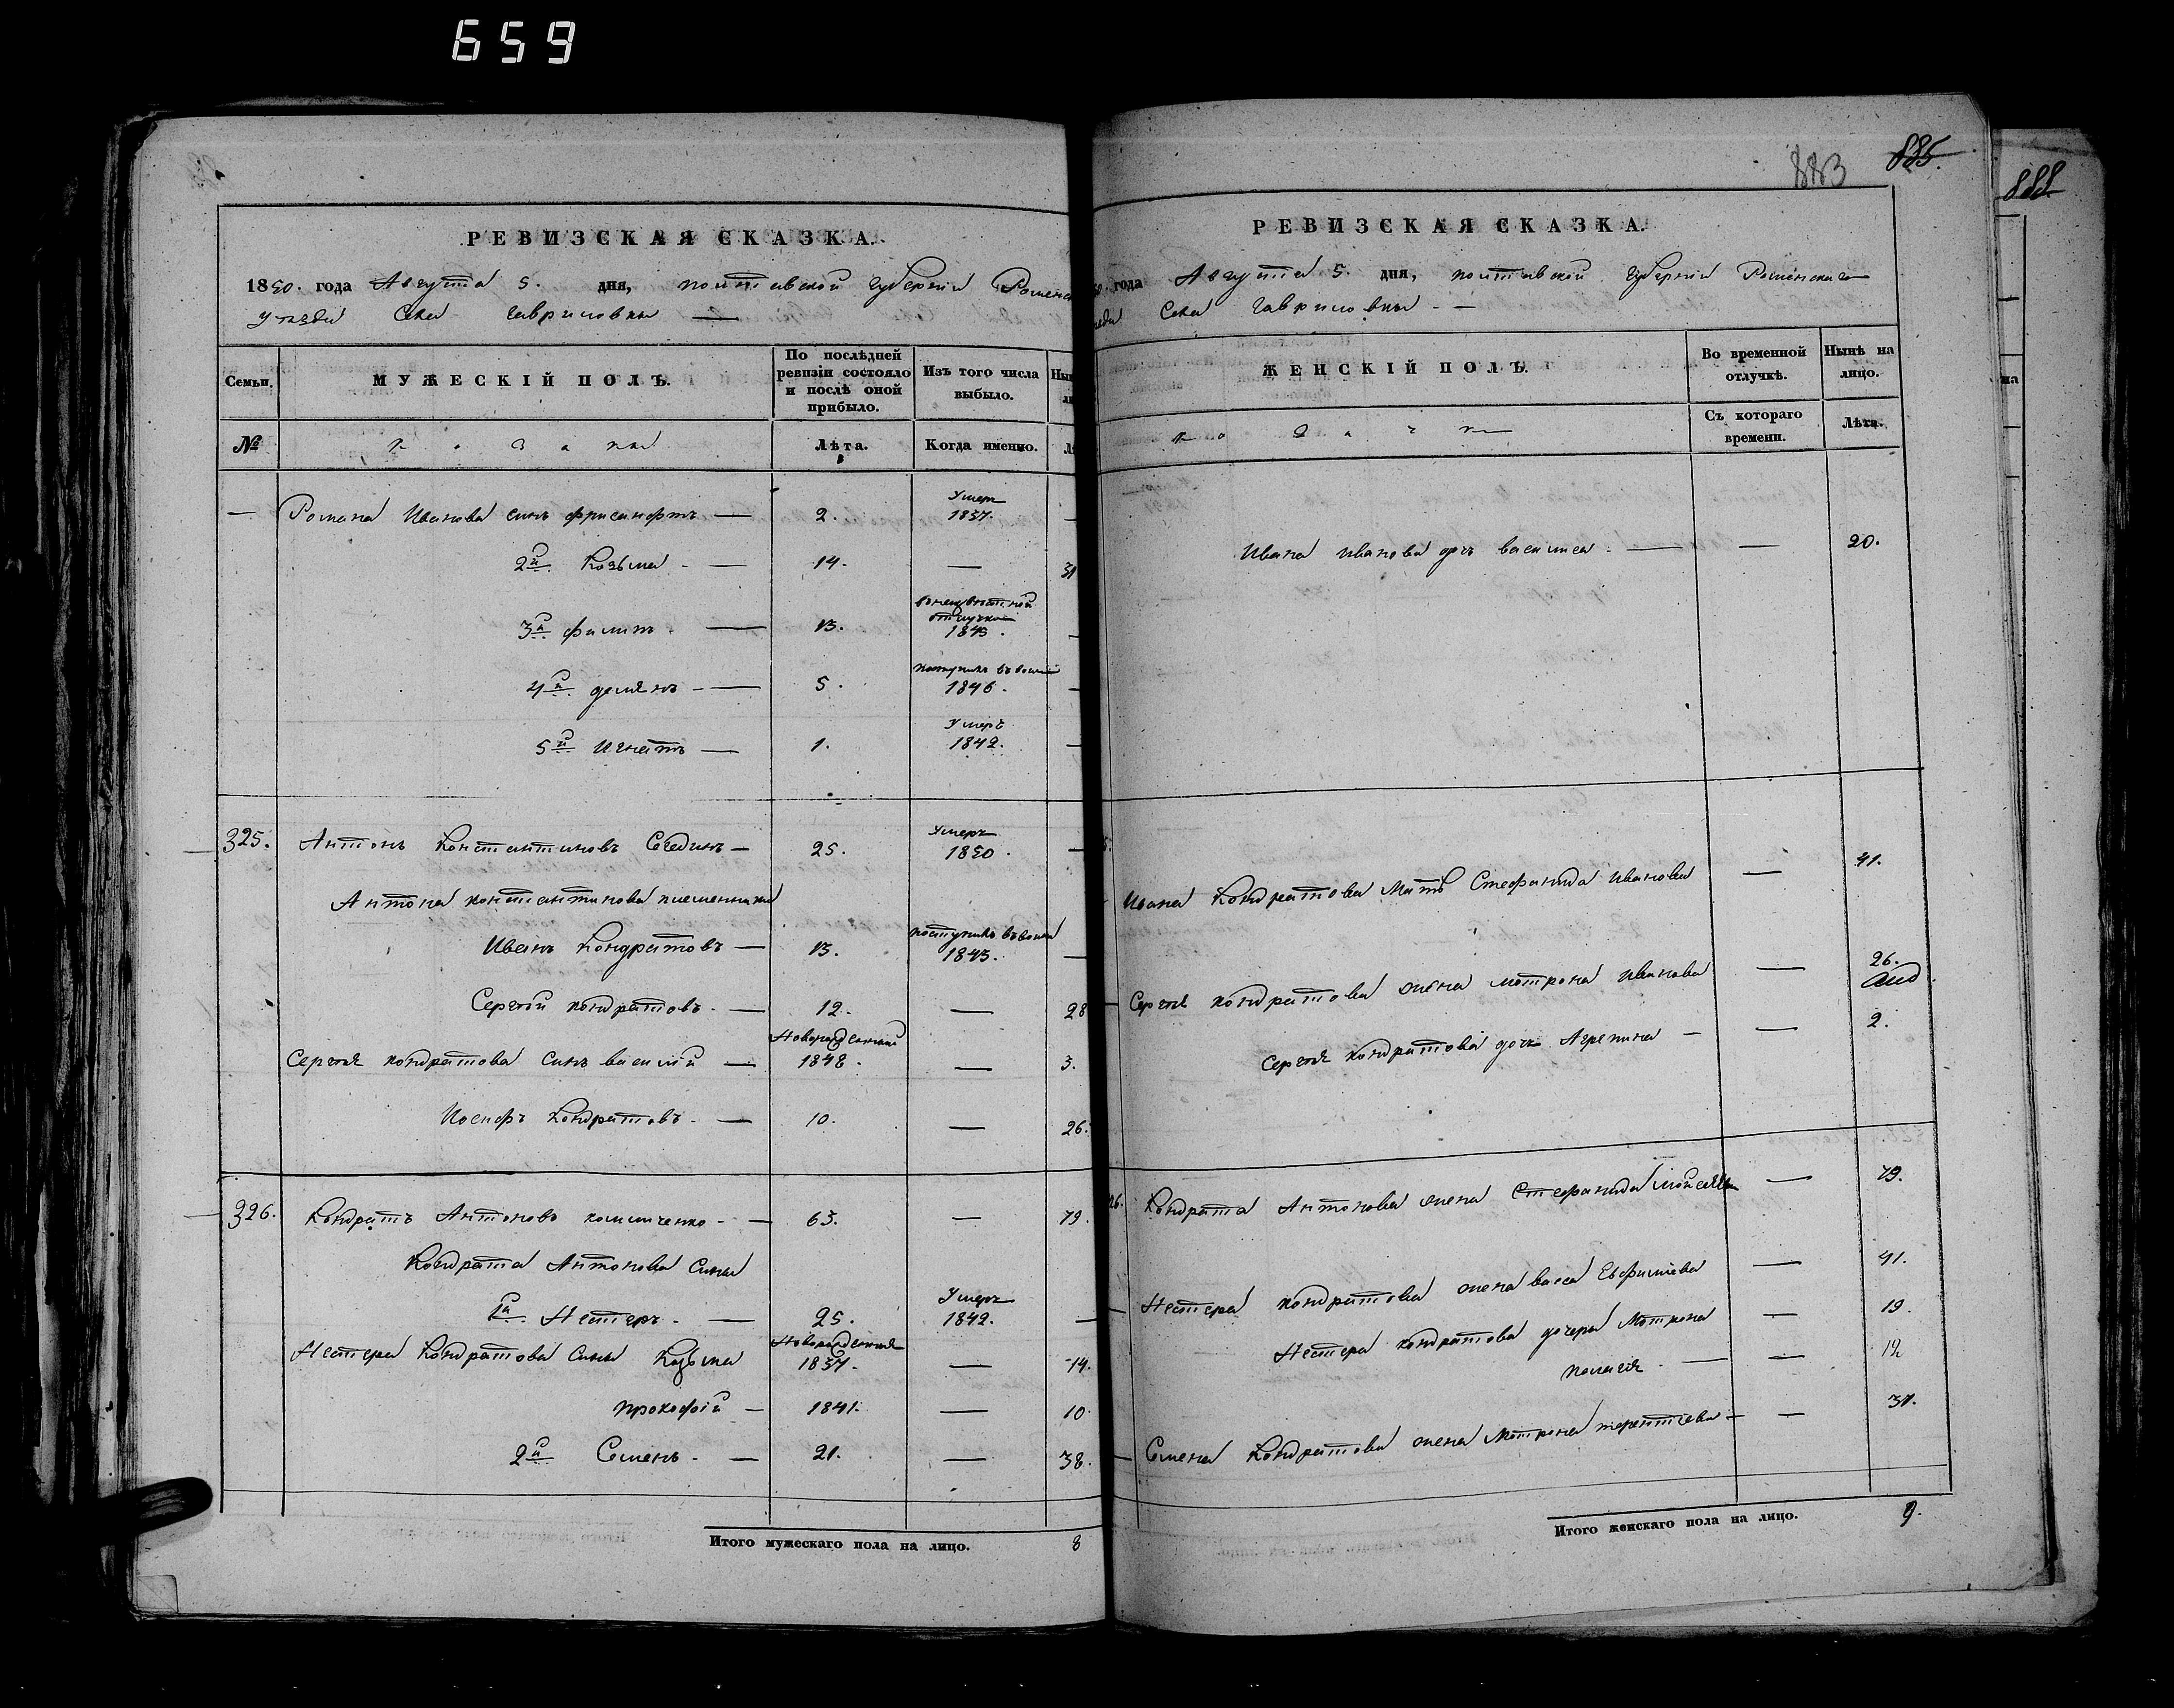 659
РЕВИЗСКАЯ СКАЗКА.
1850. года Августа 5. дня, полтавской губерніи Роменск
уѣзда Села Гавриловки —
Семьи.
МУЖЕСКІЙ ПОЛЪ.
По послѣдней ревизіи состояло и послѣ оной прибыло.
Изъ того числа выбыло.
№
к о з а ки
Лѣта.
Когда именно.
— Романа Иванова сынъ — 2. Умеръ 1837. —
2й Козьма — 14. — 31
3й филипъ — 13. отлучке 1843. —
4й демянъ — 5. поступилъ въ 1846. —
5й Игнатъ — 1. Умеръ 1842. —
325. Антонъ Константиновъ — 25. Умеръ 1850. —
Антона константинова племянники
Иванъ Кондратовъ — 13. поступилъ въ 1843. —
Сергѣй кондратовъ — 12. — 28
Сергѣя кондратова сынъ василій — Новорожденный 1848. — 3.
Иосифъ Кондратовъ — 10. — 26.
326. Кондратъ Антоновъ — 63. — 79.
Кондрата Антонова сыны
1й Нестеръ — 25. Умеръ 1842. —
Нестера Кондратова сыны Козьма Новорожденные 1837. — 14.
прокофій — 1841. — 10.
2й Семенъ — 21. — 38.
Итого мужескаго пола на лицо. 8
883 885.
РЕВИЗСКАЯ СКАЗКА.
года Августа 5. дня, полтавской губерніи Роменскаго
Села Гавриловки —
ЖЕНСКІЙ ПОЛЪ.
Во временной отлучкѣ.
Нынѣ на лицо.
Съ котораго времени.
Лѣта.
Ивана Иванова дочь василиса — — 20.
Ивана Кондратова Мать Стефанида Иванова — 41.
— Сергѣя кондратова жена мотрона Иванова — 26.
Сергѣя кондратова дочь Агрепина — — 2.
26. Кондрата Антонова жена Стефанида — 79.
— Нестера кондратова жена васса Евфимiева — 41.
Нестера кондратова дочери Мотрона — 19.
пелагея — — 12
— Семена Кондратова жена Мотрона терентiева — — 37.
Итого женскаго пола на лицо. 9.
888
на